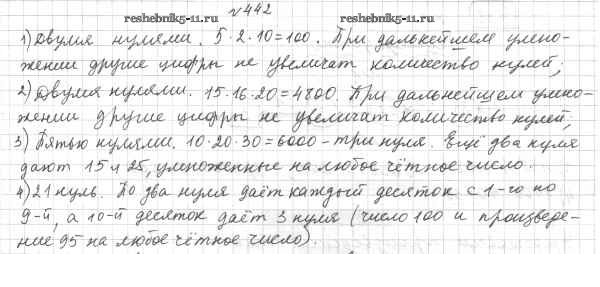 №442
reshebnik5-11.ru
reshebnik5-11.ru
1) Двумя нулями. 5·2·10=100. При дальнейшем умно-
жении другие цифры не увеличат количество нулей;
2) Двумя нулями. 15·16·20=4800. При дальнейшем умно-
жении другие цифры не увеличат количество нулей;
3) Пятью нулями. 10·20·30=6000 - три нуля. Ещё два нуля
дают 15 и 25, умноженные на любое чётное число.
4) 21 нуль. По два нуля даёт каждый десяток с 1-го по
9-й, а 10-й десяток даёт 3 нуля (число 100 и произведе-
ние 95 на любое чётное число).